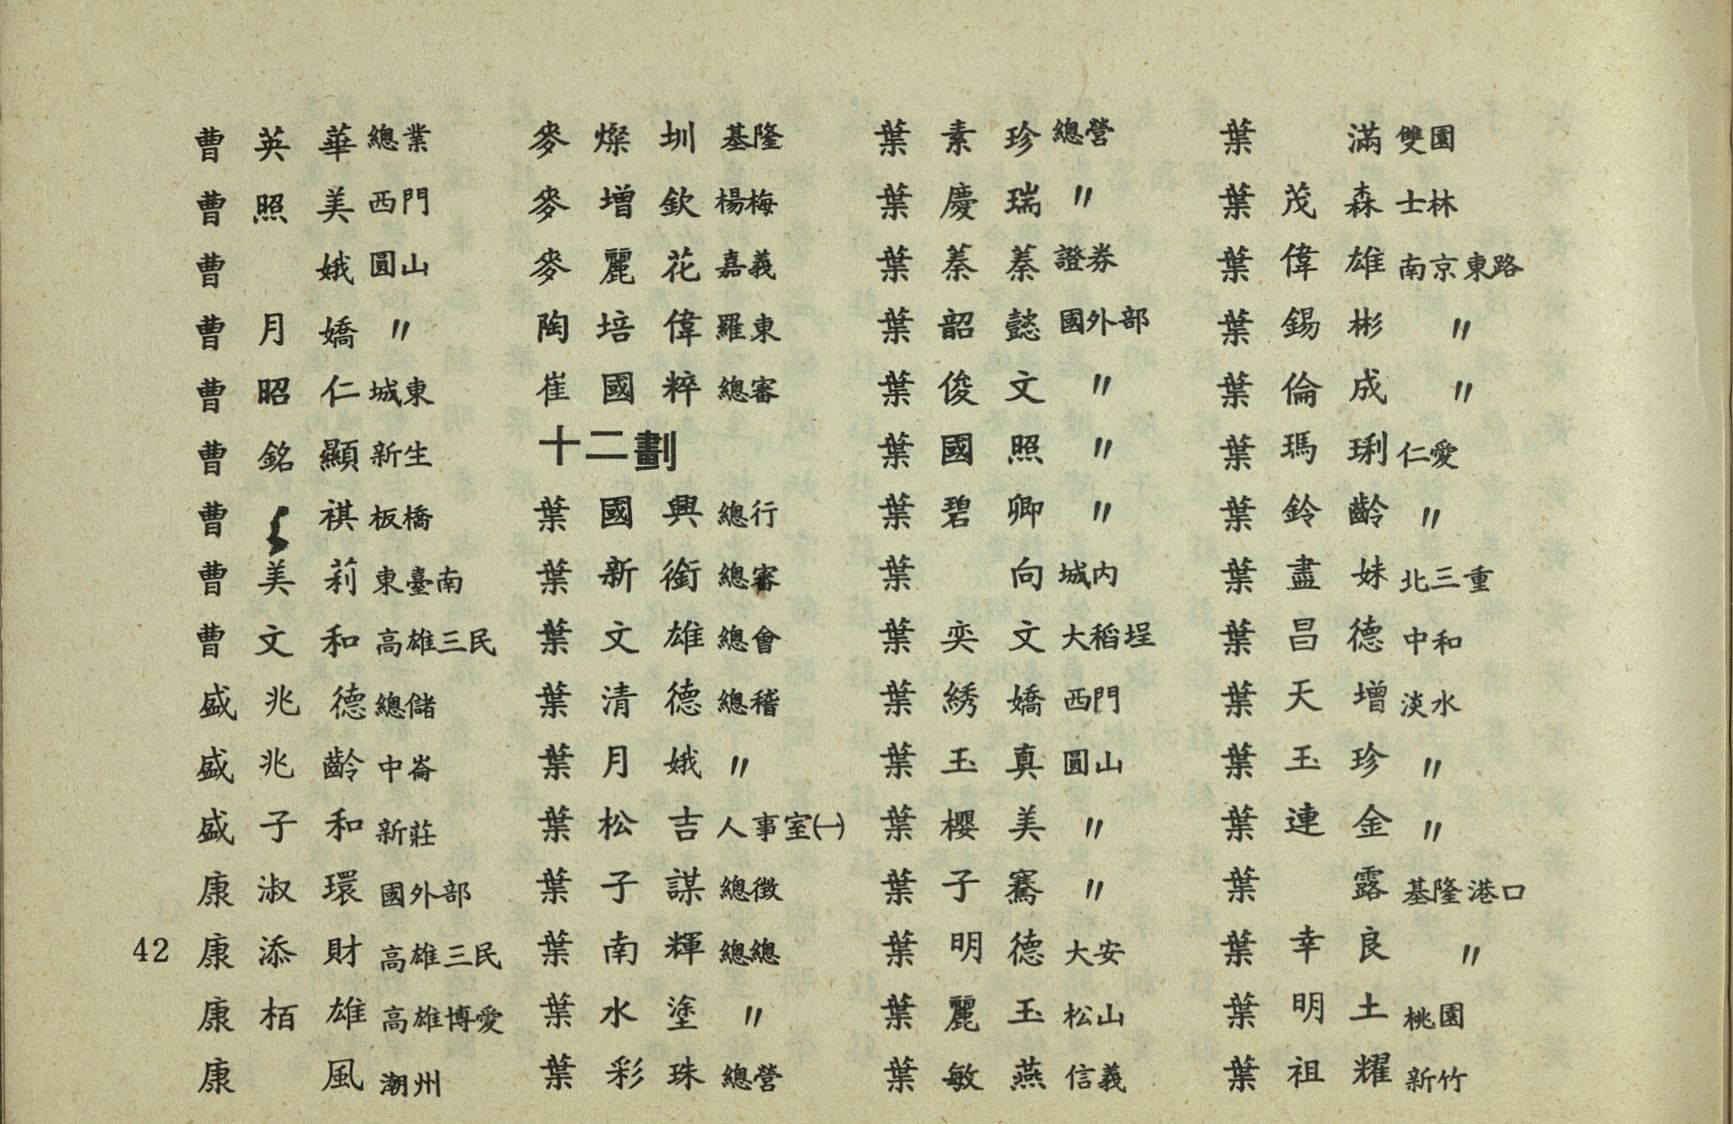 曹英華 總業
曹照美 西門
曹　娥 圓山
曹月嬌 〃
曹昭仁 城東
曹銘顯 新生
曹　祺 板橋
曹美莉 東臺南
曹文和 高雄三民
盛兆德 總儲
盛兆齡 中崙
盛子和 新莊
康淑環 國外部
康添財 高雄三民
康栢雄 高雄博愛
康　風 潮州
麥燦圳 基隆
麥增欽 楊梅
麥麗花 嘉義
陶培偉 羅東
崔國粹 總審
十二劃
葉國興 總行
葉新銜 總審
葉文雄 總會
葉清德 總稽
葉月娥 〃
葉松吉 人事室㈠
葉子謀 總徵
葉南輝 總總
葉水塗 〃
葉彩珠 總營
葉素珍 總營
葉慶瑞 〃
葉蓁蓁 證券
葉韶懿 國外部
葉俊文 〃
葉國照 〃
葉碧卿 〃
葉　向 城内
葉奕文 大稻埕
葉綉嬌 西門
葉玉真 圓山
葉櫻美 〃
葉子騫 〃
葉明德 大安
葉麗玉 松山
葉敏燕 信義
葉　滿 雙園
葉茂森 士林
葉偉雄 南京東路
葉錫彬 〃
葉倫成 〃
葉瑪琍 仁愛
葉鈴齡 〃
葉盡妹 北三重
葉昌德 中和
葉天增 淡水
葉玉珍 〃
葉連金 〃
葉　露 基隆港口
葉幸良 〃
葉明土 桃園
葉祖耀 新竹
42